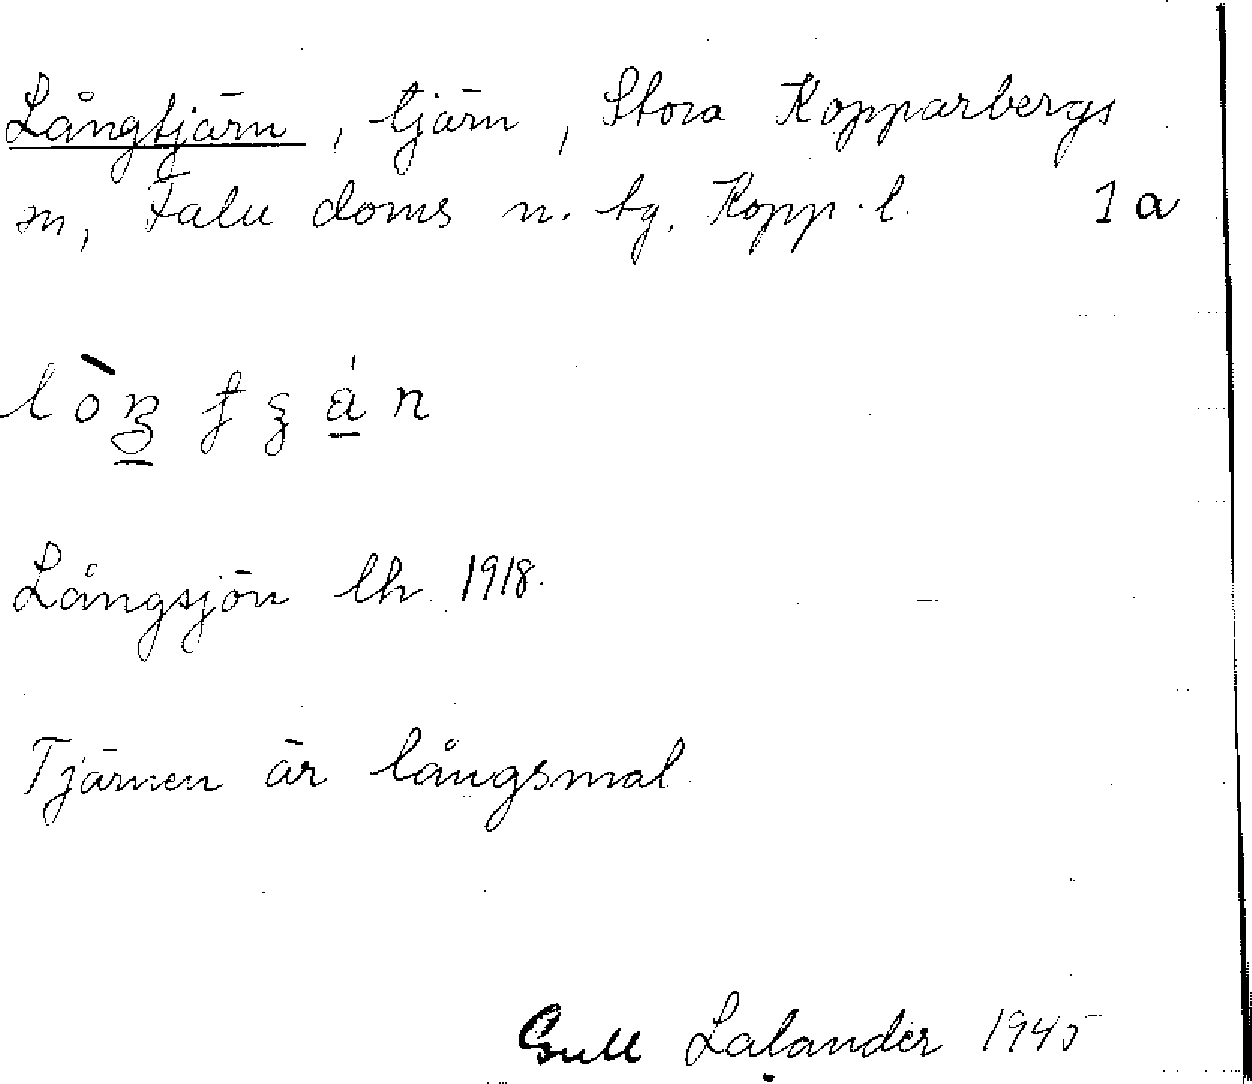 Långtjärn, tjärn, Stora Kopparbergs
sn, Falu doms n. tg. Kopp. l. 1a
Långsjön lh. 1918.
Tjärnen är långsmal
Gull Lalander 1945